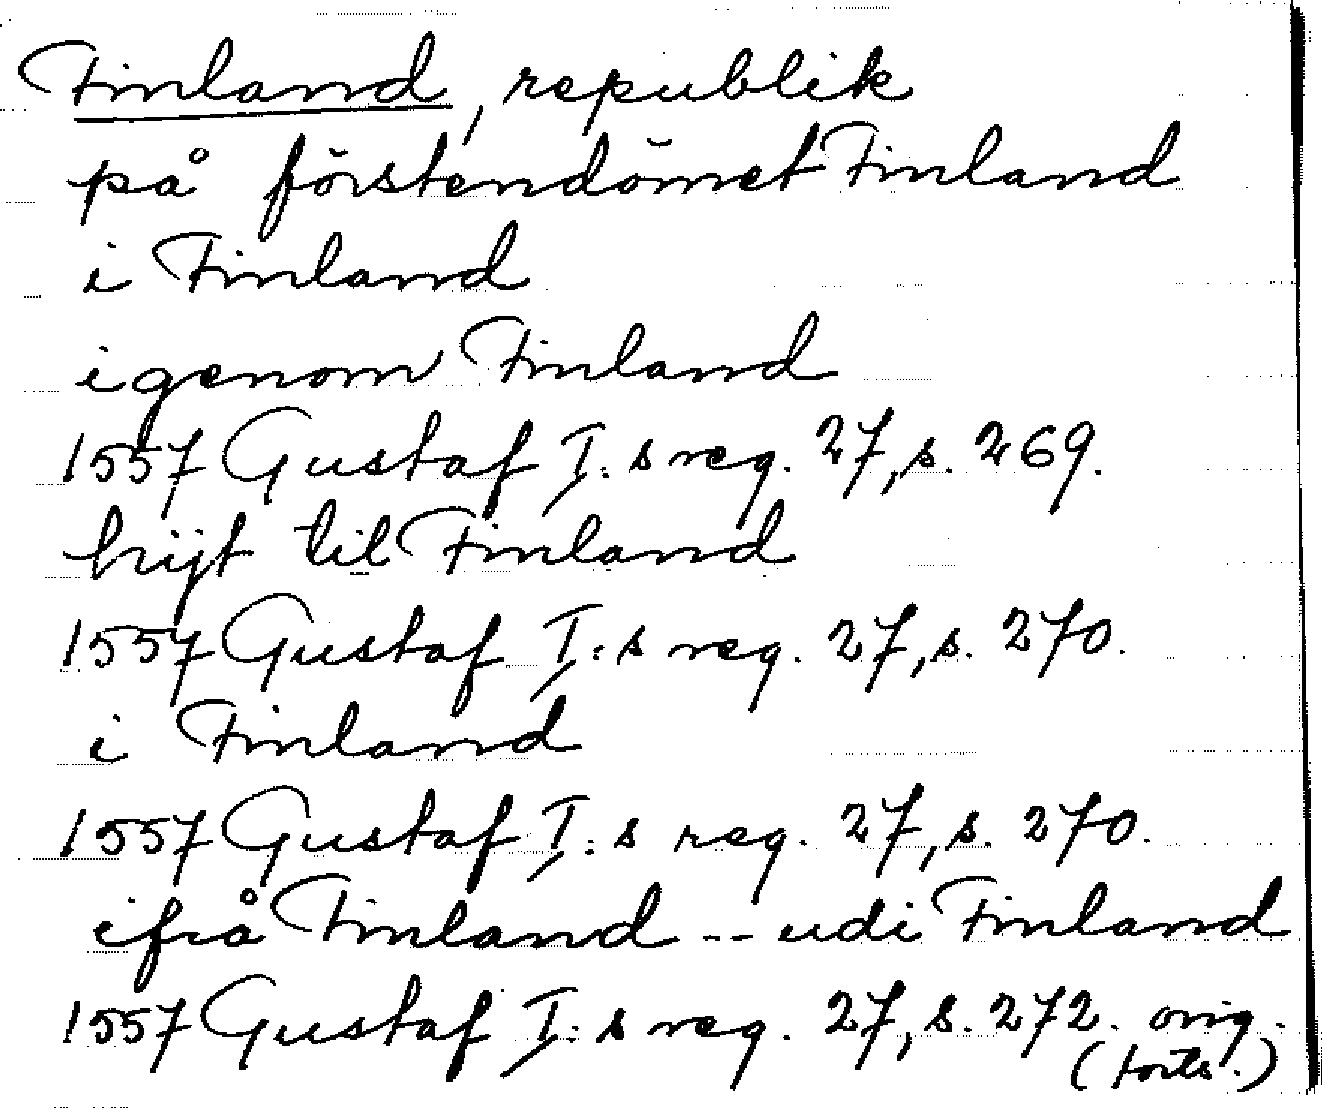 Finland, republik
på förstendömet Finland
i Finland
igenom Finland
1557 Gustaf I:s reg. 27, s. 269.
hijt til Finland
1557 Gustaf I:s reg. 27, s. 270.
i Finland
1557 Gustaf I:s reg. 27, s. 270.
ifrå Finland -- udi Finland
1557 Gustaf I:s reg. 27, s. 272. orig.
(forts.)